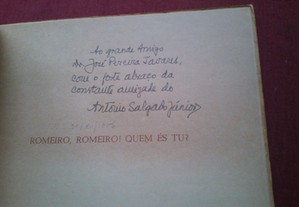 Ao grande Amigo
Dr. José Pereira Tavares,
com o forte abraço da
constante amizade do
António Salgado Júnior
ROMEIRO, ROMEIRO! QUEM ÉS TU?